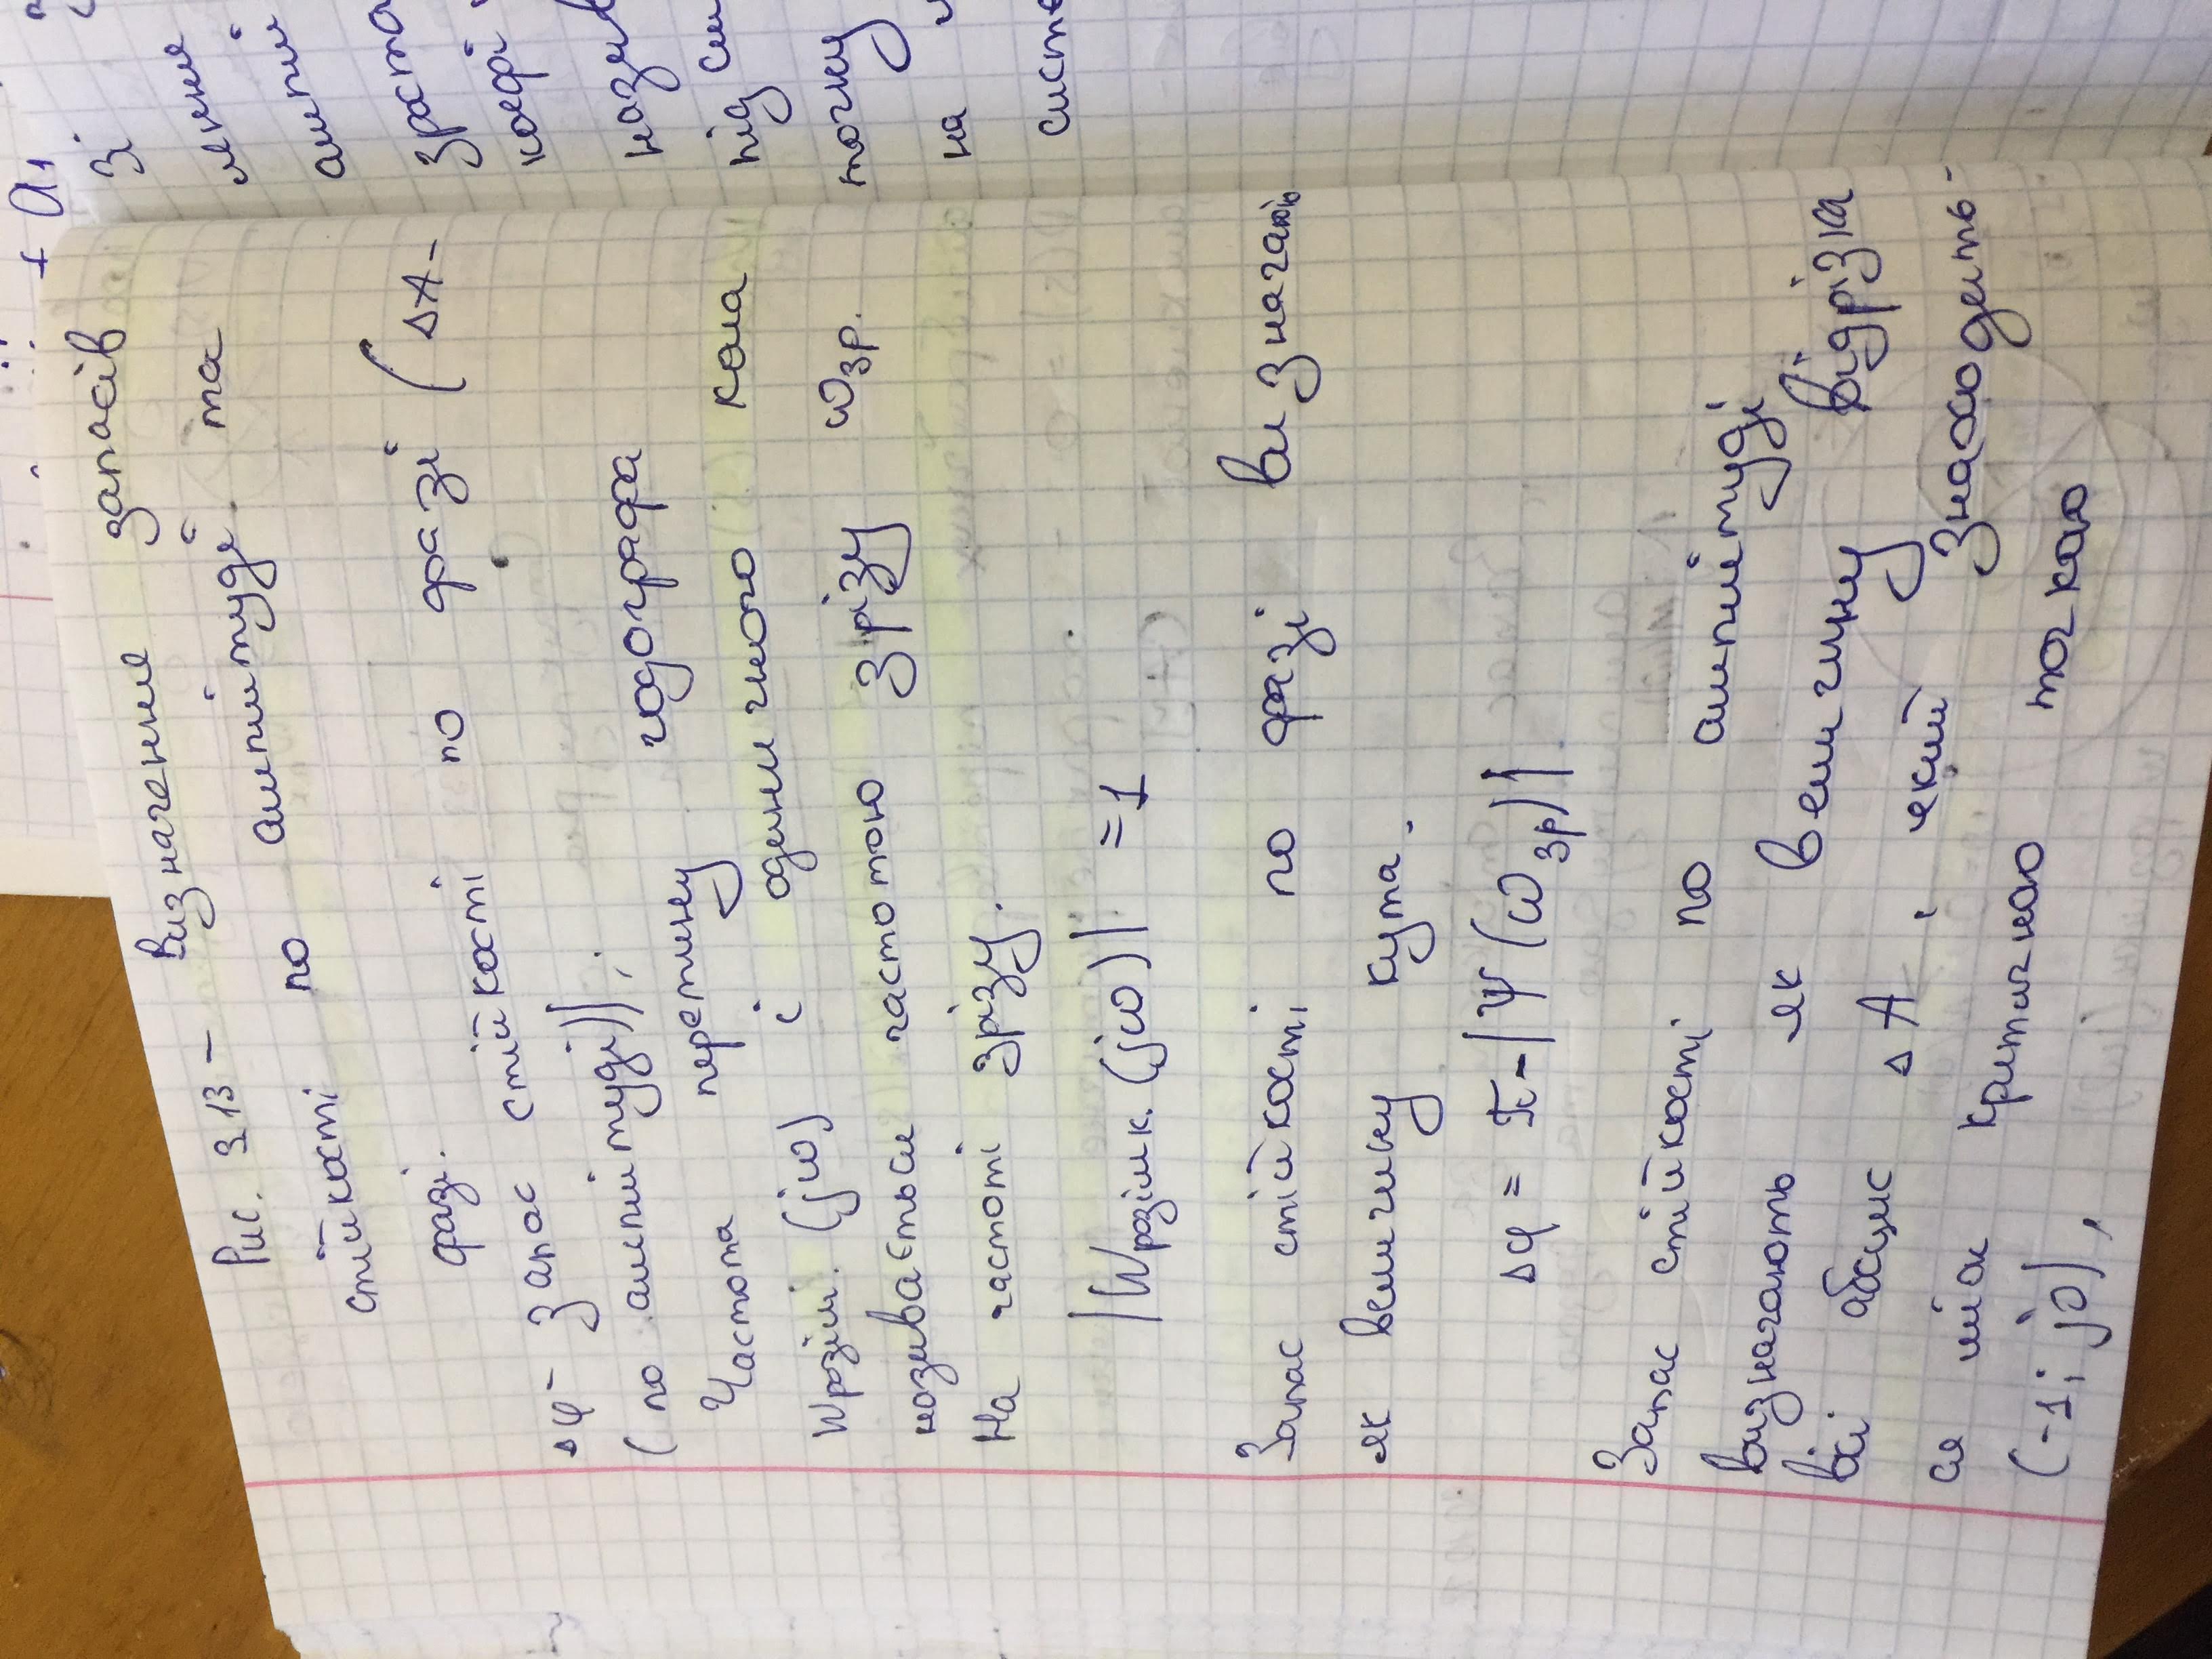 Рис. 3.13 - Визначення запасів
стійкості по амплітуді та
фазі.
Δφ - Запас стійкості по фазі (ΔA -
(по амплітуді));
Частота перетину годографа
Wрозім. (jω) і одиничного кола
називається частотою зрізу ωзр.
На частоті зрізу.
|Wрозімк. (jω)| = 1
Запас стійкості по фазі визначають
як величину кута.
Δφ = π - |Ψ(ωзр)|
Запас стійкості по амплітуді
визначають як величину відрізка
вісі абсцис ΔA, який знаходить-
ся між критичною точкою
(-1; j0),
+ a1
Зі
лення
амплі
зроста
коефі
назив
під
точку
на
систе